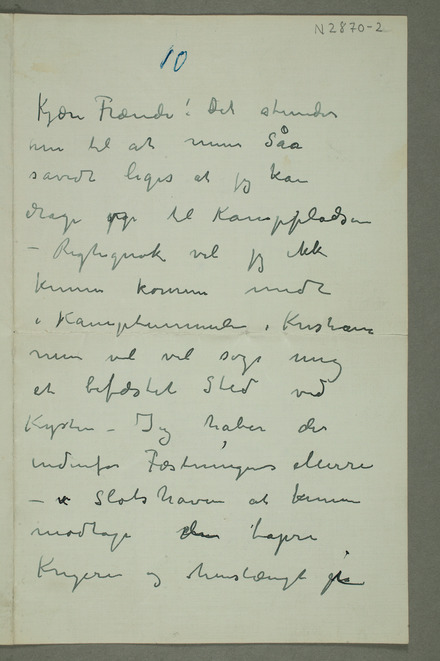 N 2870-2
10
Kjære Frænde! Det stunder
nu til at mine Såa
savidt leges at jeg kan
drage til Kamppladsen
– Rigtignok vil jeg ikk
kunne komme midt
i Kamptummelen i Kristiania
men vil vel søge mig
et befæstet Sted ved
Kysten – Jeg håber der
indenfor Fæstningens Mure
– Slotshaven at kunne
modtage den tapre
Kriger og henslængt på